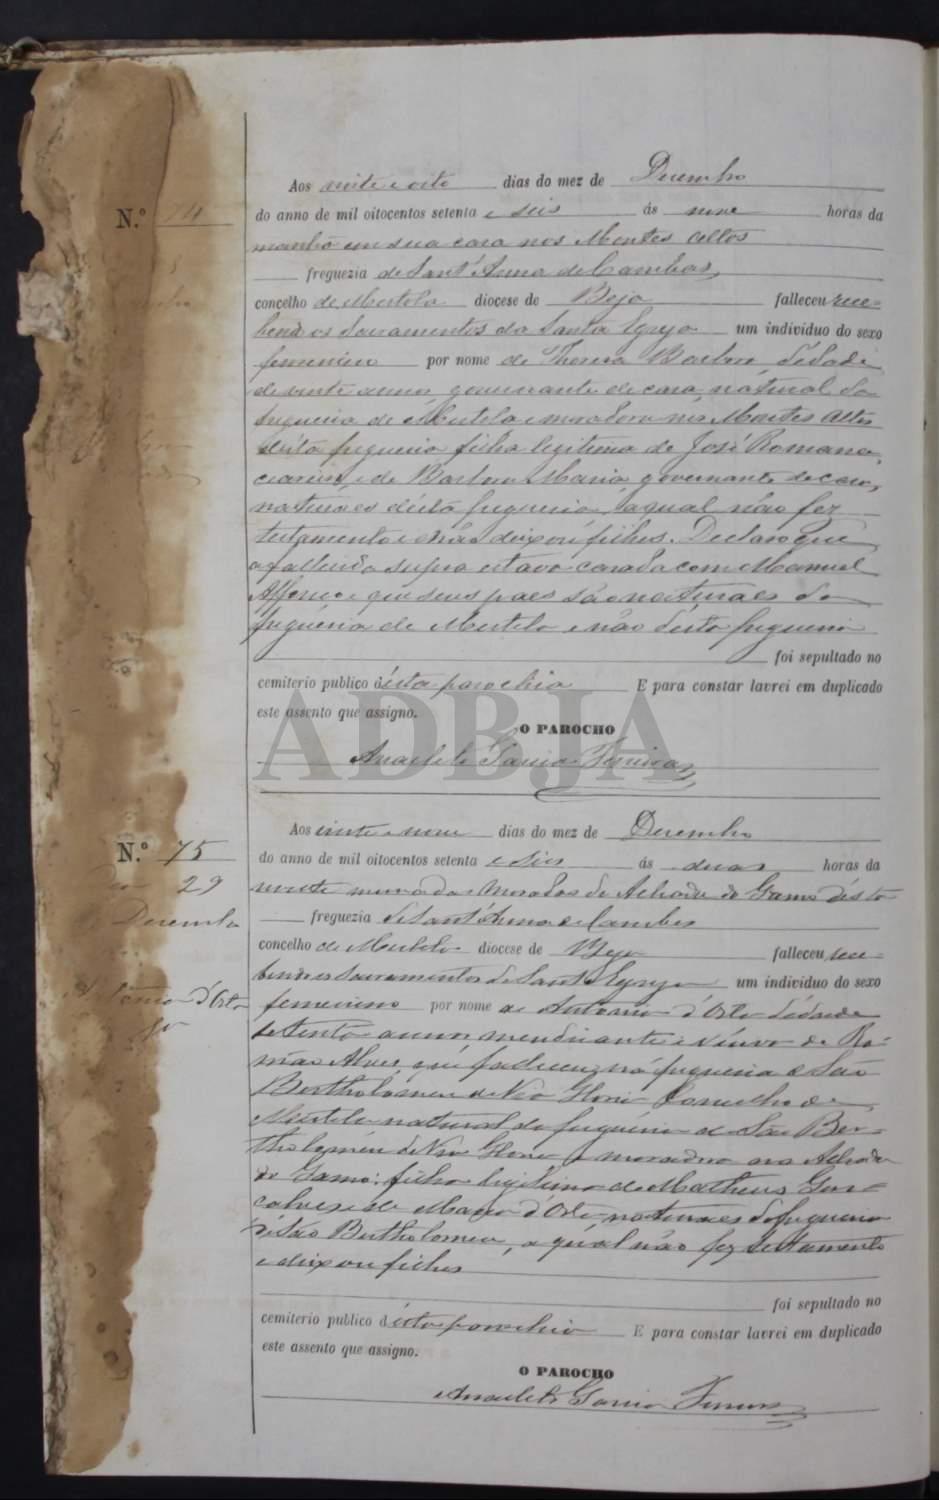 Aos vinte e oito dias do mez de Dezembro
N.º 74
do anno de mil oitocentos setenta e seis ás nove horas da
manhã em sua casa nos Montes Altos
freguezia de Sant'Anna de Cambas,
concelho de Mertola diocese de Beja falleceu rece-
bendo os Sacramentos da Santa Egreja um individuo do sexo
femenino por nome de Thereza Barbara d'idade
de vinte annos, governante de casa, natural da
freguezia de Mertola e moradora nos Montes Altos
d'esta freguezia filha legitima de José Romana,
e de Barbara Maria, governante de casa,
naturaes d'esta freguezia, a qual não fez
testamento e não deixou filhos. Declaro que
a fallecida supra estava casada com Manuel
Affonso e que seus paes são naturaes da
freguezia de Mertola e não d'esta freguezia
foi sepultado no
cemiterio publico d'esta parochia E para constar lavrei em duplicado
este assento que assigno.
O PAROCHO
Anacleto Garcia
ADBJA
Aos vinte e nove dias do mez de Dezembro
N.º 75
do anno de mil oitocentos setenta e seis ás duas horas da
29
noute de Achada do Gamo d'esta
Dezembro
freguezia de Sant'Anna de Cambas
concelho de Mertola diocese de Beja falleceu, rece-
bendo os Sacramentos da Santa Egreja um individuo do sexo
Antonia d'Orta
femenino por nome de Antonia d'Orta d'idade
setenta annos, mendicante e viuva de Ro-
mão Alves, que falleceu na freguezia de São
Bartholomeu de Via Gloria Concelho de
Mertola natural da freguezia de São Bar-
tholomeu de Via Gloria e moradora na Achada
do Gamo: filha legitima de Matheus Gon-
calves e de Maria d'Orta, naturaes da freguezia
de São Bartholomeu, a qual não fez testamento
e deixou filhos
foi sepultado no
cemiterio publico d'esta parochia E para constar lavrei em duplicado
este assento que assigno.
O PAROCHO
Anacleto Garcia